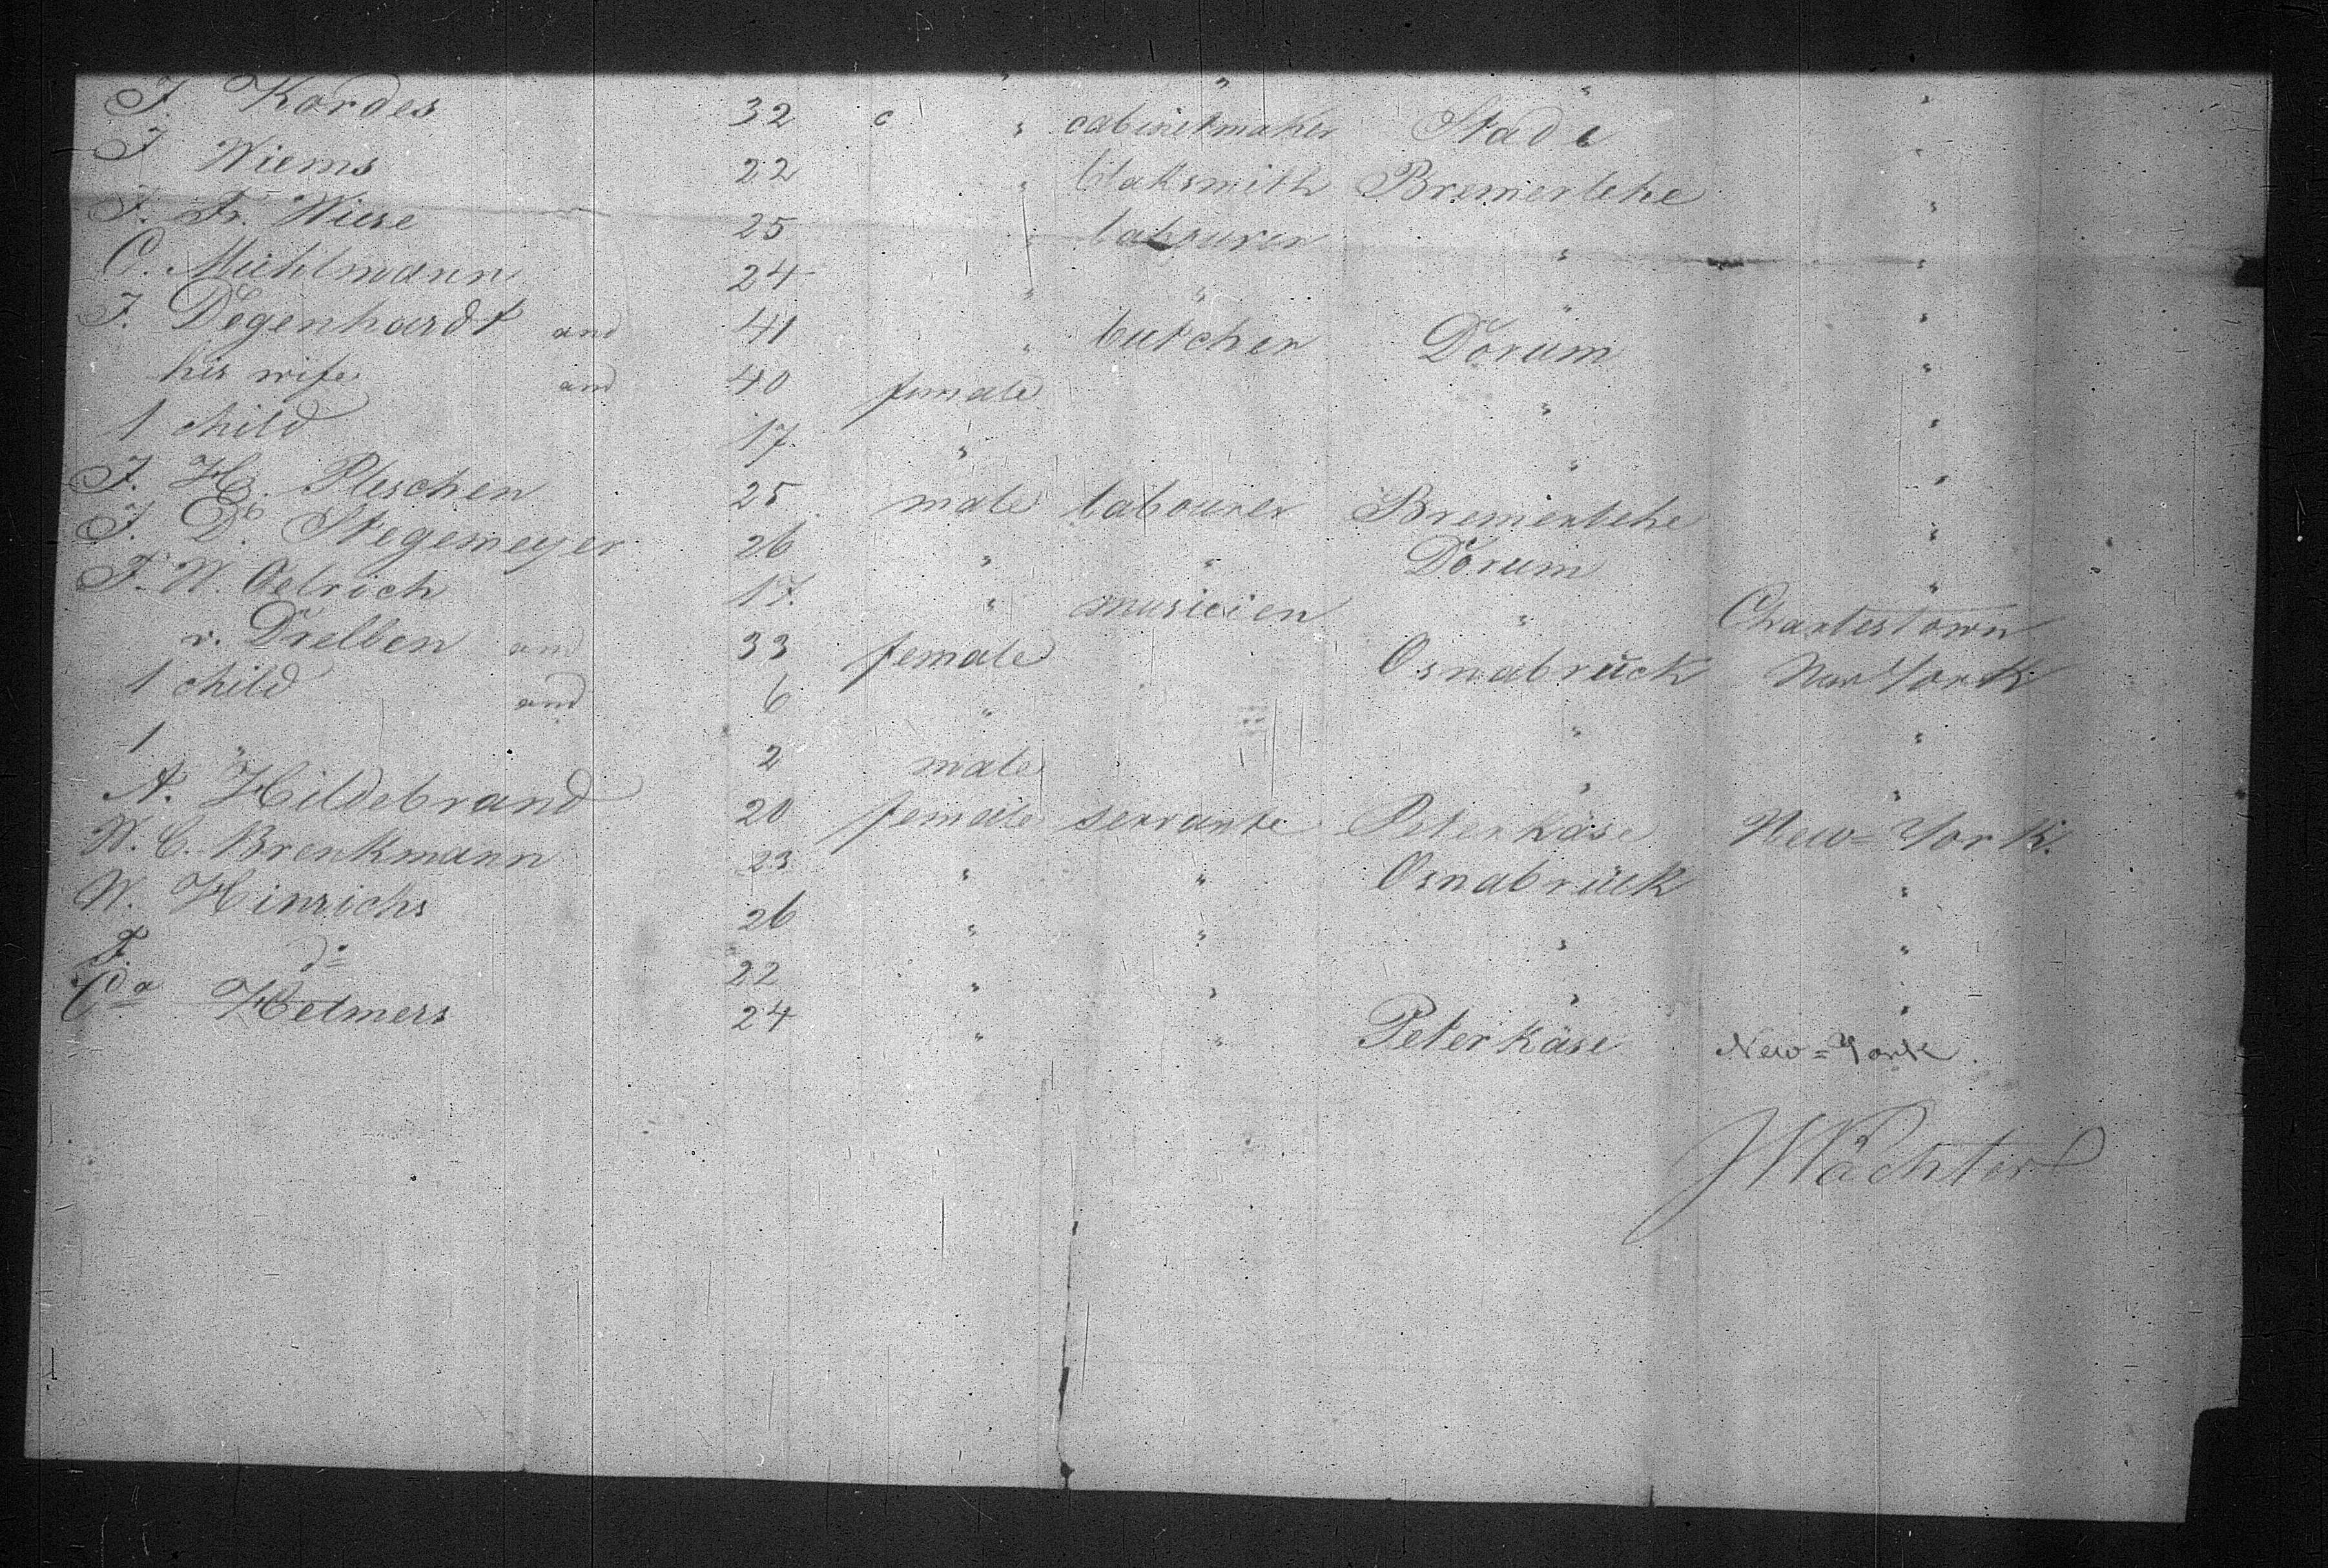 J. Kordes 32 " cabinetmaker Stade "
J Wiems 22 " blaksmith Bremerlehe "
J. Fr. Wiese 25 " labourer " "
C. Mühlmann 24 " " " "
J. Degenhardt and 41 " butcher Dorum "
his wife and 40 female " "
1 child 17. " " "
J. H. Pleschen 25 male labourer Bremerlehe "
J. D. Stegemeyer 26 " " Dorum "
F. W. Oelrich 17. " musicien " Charlestown
v. Drellen and 33 female Osnabrück New York
1 child and 6 " " "
1 " 2 male " "
A. Hildebrand 20 female servante Peterkäse New=York.
W. C. Brenkmann 23 " " Osnabrück "
W. Hinrichs 26 " " " "
F. do 22 " " " "
Helmers 24 " " Peterkäse New=York.
J Wächter